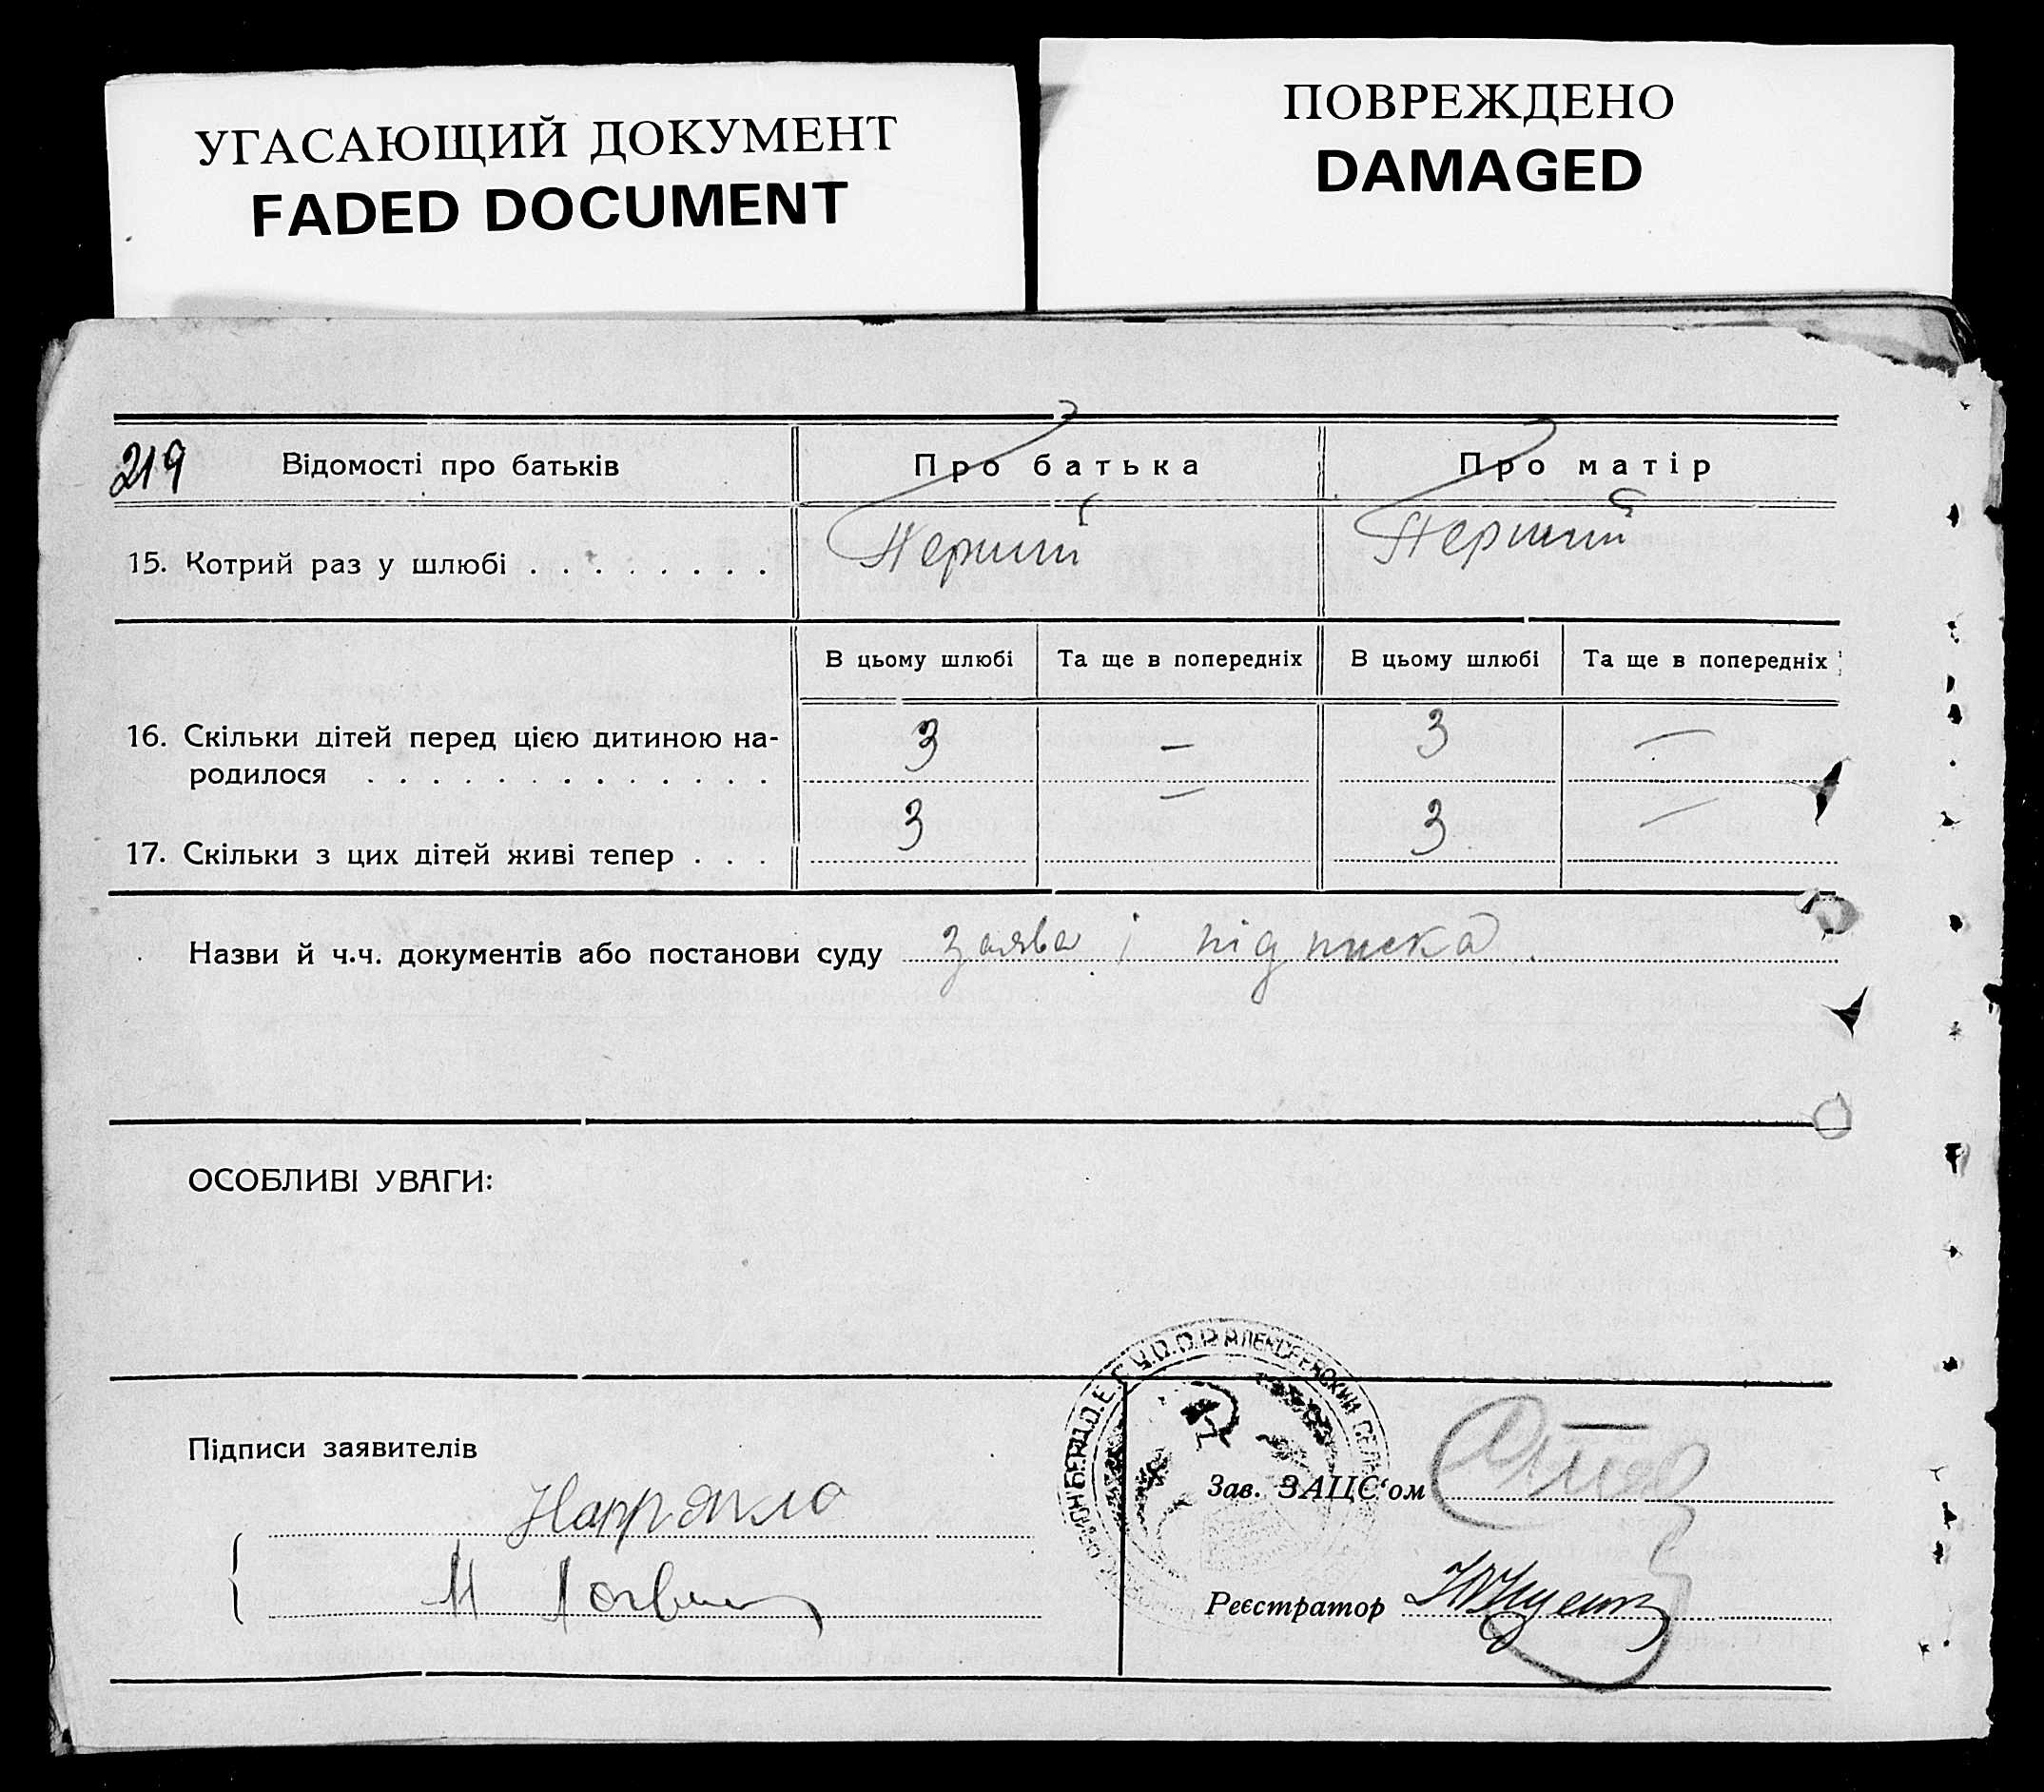 УГАСАЮЩИЙ ДОКУМЕНТ
FADED DOCUMENT
ПОВРЕЖДЕНО
DAMAGED
219 Відомості про батьків Про батька Про матір
15. Котрий раз у шлюбі . . . . . . . . Перший Перший
В цьому шлюбі Та ще в попередніх В цьому шлюбі Та ще в попередніх
16. Скільки дітей перед цією дитиною на- 3 — 3 —
родилося . . . . . . . . . . . . . . .
17. Скільки з цих дітей живі тепер . . . 3 — 3 —
Назви й ч.ч. документів або постанови суду заява і підписка
ОСОБЛИВІ УВАГИ:
У.С.С.Р. АЛЕКСЕЕВСКИЙ СЕЛЬ
Підписи заявителів
Зав. ЗАЦС‘ом
М
Реєстратор